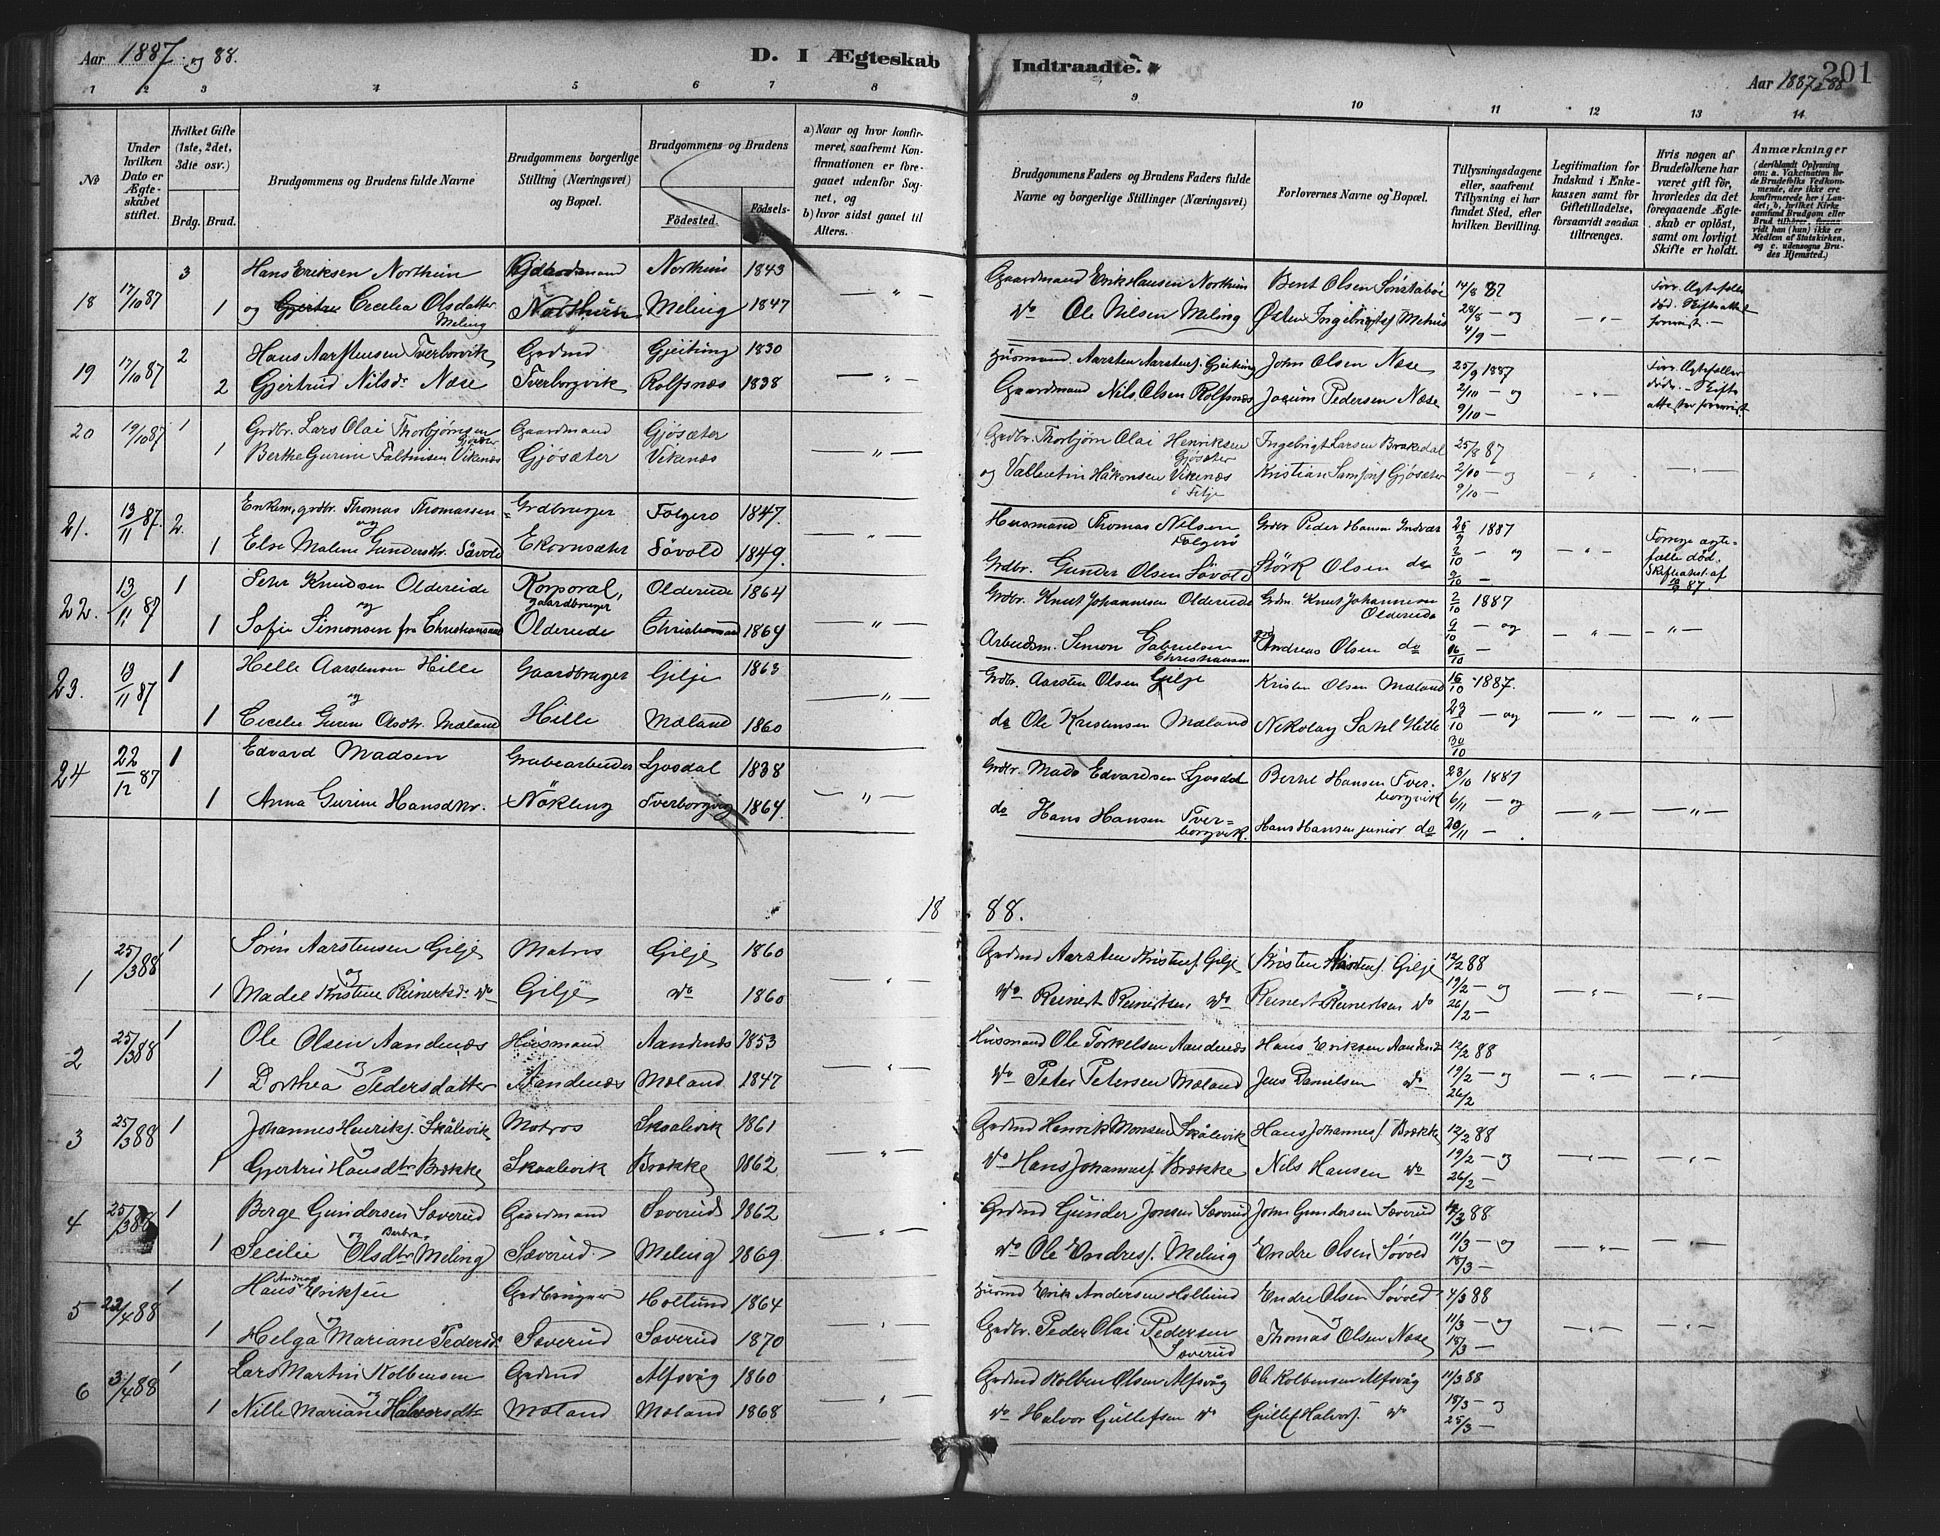 Aar 1887 og 88.
D. I Ægteskab Indtraadte.
Aar 1887 - 88
201
1 2 3 4 5 6 7 8 9 10 11 12 13 14
No
Under hvilken Dato er Ægteskabet stiftet.
Hvilket Gifte (1ste, 2det, 3die osv.)
Brdg. Brud.
Brudgommens og Brudens fulde Navne
Brudgommens borgerlige Stilling (Næringsvei) og Bopæl.
Brudgommens og Brudens
Födested. Födsels-
a) Naar og hvor konfirmeret, saafremt Konfirmationen er foregaaet udenfor Sognet, og
b) hvor sidst gaaet til Alters.
Brudgommens Faders og Brudens Faders fulde Navne og borgerlige Stillinger (Næringsvei)
Forlovernes Navne og Bopæl.
Tillysningsdagene eller, saafremt Tillysning ei har fundet Sted, efter hvilken Bevilling.
Legitimation for Indskud i Enkekassen samt for Giftetilladelse, forsaavidt saadan tiltrænges.
Hvis nogen af Brudefolkene har været gift för, hvorledes da det foregaaende Ægteskab er oplöst, samt om lovligt Skifte er holdt.
Anmærkninger
18 17/10 87 3 Hans Eriksen Northun Gaardmand Northun 1843 — " — Gaardmand Erik Hansen Northun Bent Olsen Sönstabö 14/8 87
1 og Gjertru Cecilia Olsdatter Meling Northun Meling 1847 Do Ole Nilsen Meling Østen Ingebrigts. Mehus 28/8 — og
4/9 —
19 17/10 87 2 Hans Aarstensen Tverborvik Grdmd Gjeitung 1830 — " — Husmand Aarsten Aarstens. Gjeitung John Olsen Næse 25/9 1887
2 Gjertrud Nilsdr Næse Tverborgvik Rolfsnæs 1838 Gaardmand Nils Olsen Rolfsnæs Joeium Pedersen Næse 2/10 — og
9/10 —
20 19/10 87 1 Grdbr. Lars Olai Thorbjörnsen Gjösæter Gaardmand Gjösæter — " — Grdbr. Thorbjörn Olai Henriksen Gjösæter Ingebrigt Larsen Brakedal 25/8 87
1 Berthe Gurine Faltinsen Vikenæs Gjösæter Vikenæs og Vallentin Håkonsen Vikenæs i Fitje Kristian Samsons. Gjösæter 2/10 — og
9/10 —
21. 13/11 87. 2. Enkem, grdbr. Thomas Thomassen Grdbruger Folgerö 1847. — " — Husmand Thomas Nilsen Folgerö Grdbr Peder Hansen Indvær 25/9 1887
og
1 Else Malene Gundersdtr. Såvold Ekornsæter Såvold 1849. Grdbr. Gunder Olsen Såvold Störk Olsen do 2/10 — og
9/10 —
22. 13/11 87 1 Peter Knudsen Oldereide Korporal, gaardbruger Oldereide 1864 — " — Grdbr. Knut Johannesen Oldereide Grdm. Knut Johannesen Oldereide 2/10 1887
og
1 Sofie Simonsen fra Christiansand Oldereide Christiansand 1864 Arbeidsm. Simon Gabrielsen Christiansand Andreas Olsen do 9/10 — og
16/10 —
23. 13/11 87 1 Helle Aarstensen Hille Gaardbruger Gilje 1863 — " — Grdbr. Aarsten Olsen Gilje Kristen Olsen Mæland 16/10 - 1887.
og
1 Cecilie Gurine Olsdtr. Mæland Hille Mæland 1860 do Ole Kristensen Mæland Nikolay Sahl Hille 23/10 — og
30/10
24 22/12 87 1 Edvard Madsen Grubearbeider Ljosdal 1838 — " — Grdbr. Mads Edvardsen Ljosdal Bernt Hansen Tverborgvik 23/10 1887
1 Anna Gurine Hansdtr. Nökling Tverborgvig 1864. do Hans Hansen Tverborgvik. Hans Hansen junior do 6/11 — og
20/11 — .
1888.
1 25/3 88 1 Sören Aarstensen Gilje Matros Gilje 1860 " Grdmd Aarsten Kristens. Gilje Kristen Aarstens. Gilje 12/2 88
og
1 Madel Kristine Reinertsd. do Gilje do 1860 do Reinert Reinertsen do Reinert Reinertsen do 19/2 — og
26/2 —
2 25/3 88 1 Ole Olsen Aandenæs Husmand Aandenæs 1853 " Husmand Ole Torkelsen Aandenæs Hans Eriksen Aandenæs 12/2 88
1 Dorthea Pedersdatter Aandenæs Mæland 1847 do Peter Petersen Mæland Jens Danielsen do 19/2 — og
26/2
3 25/3 88 1 Johannes Henriks. Skålevik Matros Skaalevik 1861 " Grdmd Henrik Monsen Skålevik Hans Johannes. Brække 12/2 88
1 Gjertru Hansdtr Brække Skaalevik Brække 1862 do Hans Johannes. Brække Nils Hansen do 19/2 — og
26/2 —
4 25/3 88 1 Berge Gundersen Sæverud Gaardmand Sæverud 1862 " Grdmd Gunder Jonsen Sæverud John Gundersen Sæverud 4/3 88
og
1 Secilie Barbra Olsdtr Meling Sæverud Meling 1869 do Ole Endres. Meling Endre Olsen Såvold 11/3 — og
18/3 —
5 22/4 88 1 Hans Andreas Eriksen Grdbruger Hollund 1864 " Husmd Erik Andersen Hollund Endre Olsen Såvold 4/3 88
1 Helga Mariane Pedersd. Sæverud Sæverud 1870 Grdbr. Peder Olai Pedersen Sæverud Thomas Olsen Næse 11/3 — og
18/3 —
6 3/4 88 1 Lars Martin Kolbensen Grdmd Alfsvåg 1860 " Grdmd Kolben Olsen Alfsvåg Ole Kolbensen Alfsvåg 11/3 88
1 Nille Mariane Halvorsdtr Mæland Mæland 1868 do Halvor Gullefsen do Gullef Halvors. do 18/3 — og
25/3 —